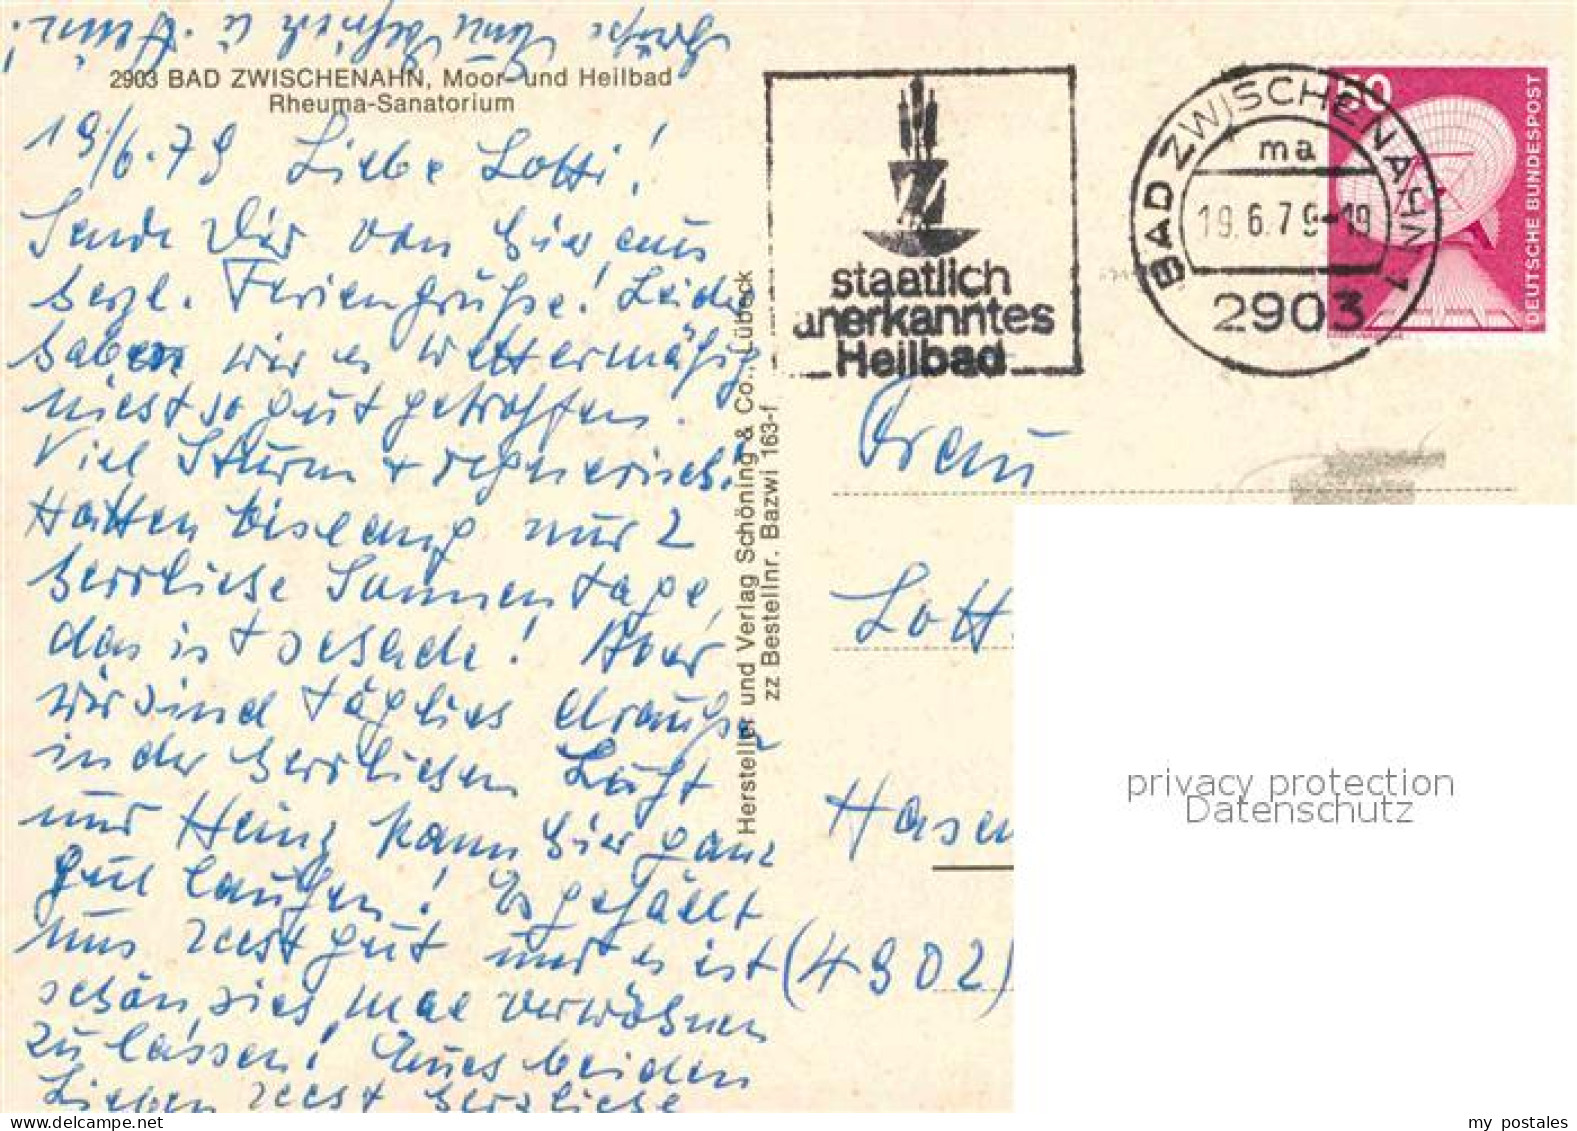 2903 BAD ZWISCHENAHN, Moor- und Heilbad
Rheuma-Sanatorium
19/6.79 Liebe Lotti!
Sende Dir von hier aus
herzl. Feriengrüße! Leider
haben wir es wettermäßig
nicht so gut getroffen.
Viel Sturm + regnerisch!
Hatten bislang nur 2
herrliche Sonnentage,
das ist schade! Aber
wir sind täglich draußen
in der herrlichen Luft
und Heinz kann hier ganz
gut laufen! Es gefällt
uns recht gut und es ist
schön, sich mal verwöhnen
zu lassen! Euch beiden
Lieben recht herzliche
Grüße
Hersteller und Verlag Schöning & Co., Lübeck
zz Bestellnr. Bazwi 163-f
staatlich
anerkanntes
Heilbad
BAD ZWISCHENAHN 1
ma
19.6.79-19
2903
50
DEUTSCHE BUNDESPOST
Frau
Lott
Hasen
(4902)
privacy protection
Datenschutz
my postales